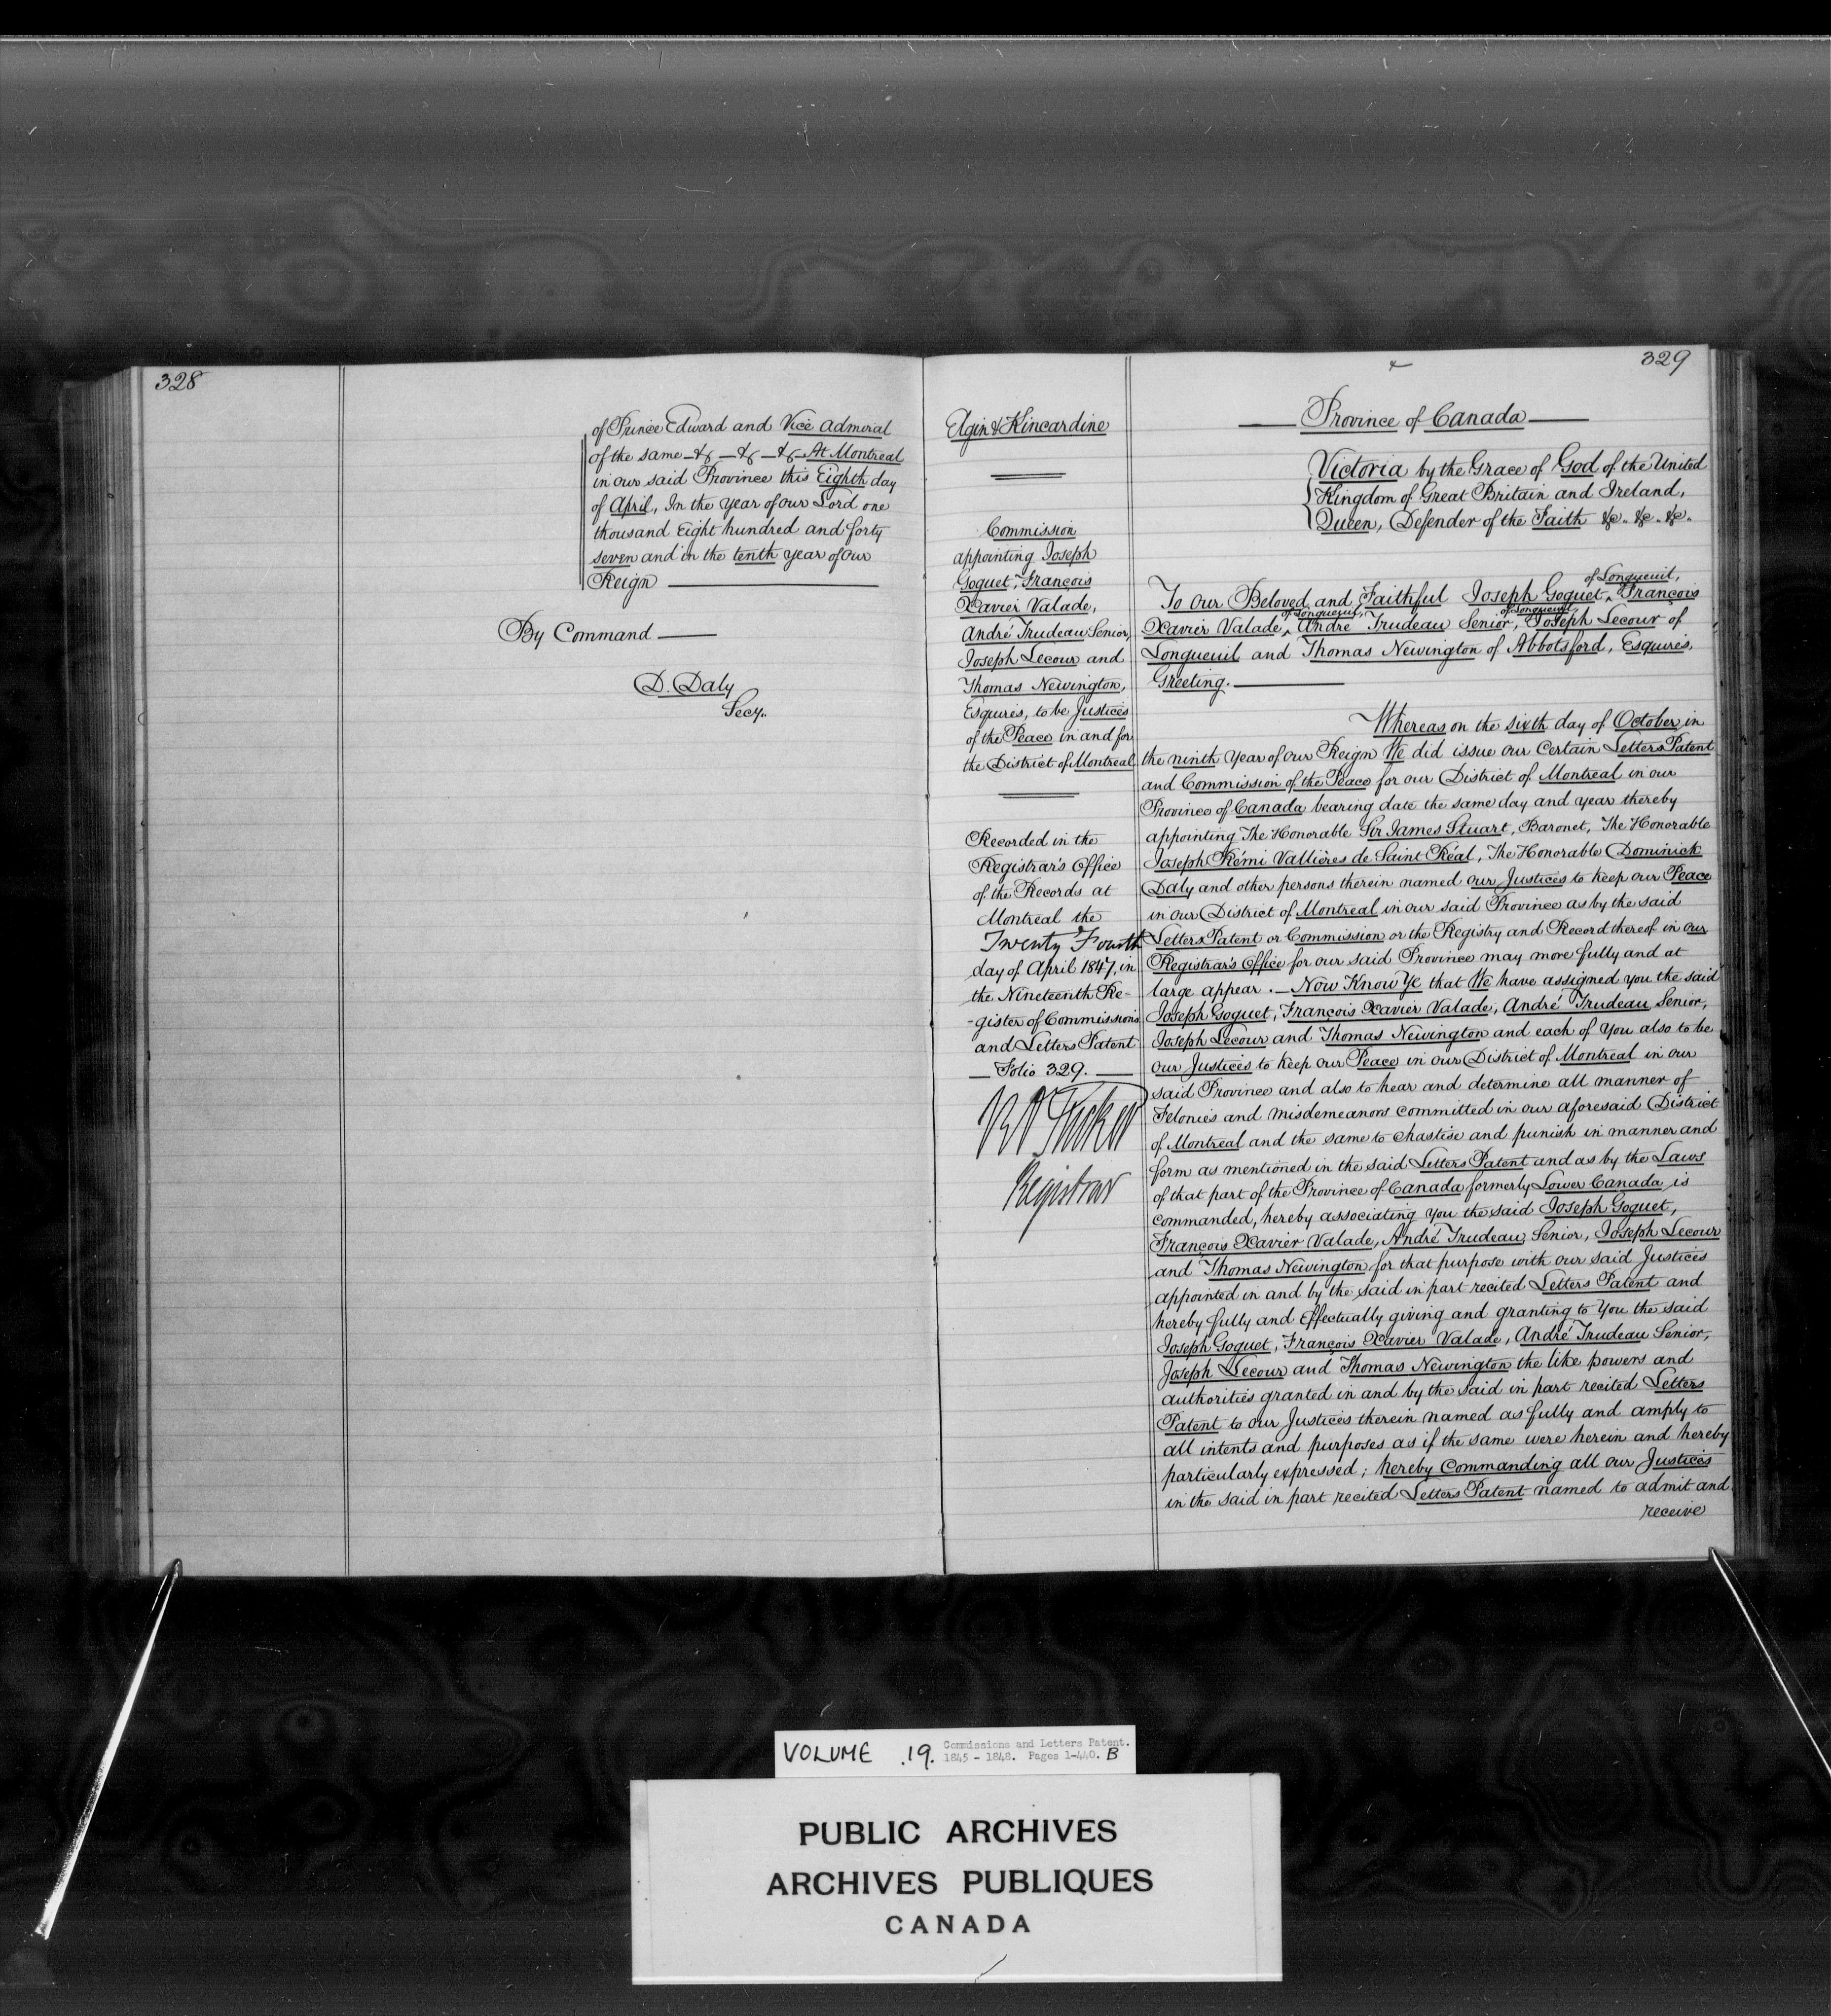 328
of Prince Edward and Vice Admiral
of the same - &c - &c - &c - At Montreal
in our said Province this Eighth day
of April, In the year of our Lord one
thousand Eight hundred and forty
seven and in the tenth year of our
Reign
By Command
D. Daly
Secy.
329
Elgin & Kincardine
Commission
appointing Joseph
Goguet, François
Xavier Valade,
André Trudeau Senior,
Joseph Lecour and
Thomas Newington,
Esquires, to be Justices
of the Peace in and for
the District of Montreal
Recorded in the
Registrar's Office
of the Records at
Montreal the
Twenty Fourth
day of April 1847, in
the Nineteenth Re-
-gister of Commissions
and Letters Patent
Folio 329.
R A Tucker
Registrar
Province of Canada
Victoria by the Grace of God of the United
Kingdom of Great Britain and Ireland,
Queen, Defender of the Faith &c. &c. &c.
To our Beloved and Faithful Joseph Goguet ^ of Longueuil, François
Xavier Valade, ^ of Longueuil, André Trudeau Senior, of Longueuil, Joseph Lecour of
Longueuil and Thomas Newington of Abbotsford, Esquires,
Greeting.
Whereas on the sixth day of October in
the ninth year of our Reign We did issue our Certain Letters Patent
and Commission of the Peace for our District of Montreal in our
Province of Canada bearing date the same day and year thereby
appointing The Honorable Sir James Stuart, Baronet, The Honorable
Joseph Rémi Vallières de Saint Réal, The Honorable Dominick
Daly and other persons therein named our Justices to keep our Peace
in our District of Montreal in our said Province as by the said
Letters Patent or Commission or the Registry and Record thereof in our
Registrar's Office for our said Province may more fully and at
large appear. - Now Know Ye that We have assigned you the said
Joseph Goguet, François Xavier Valade, André Trudeau Senior,
Joseph Lecour and Thomas Newington and each of You also to be
our Justices to keep our Peace in our District of Montreal in our
said Province and also to hear and determine all manner of
Felonies and misdemeanors committed in our aforesaid District
of Montreal and the same to chastise and punish in manner and
form as mentioned in the said Letters Patent and as by the Laws
of that part of the Province of Canada formerly Lower Canada is
commanded, hereby associating you the said Joseph Goguet,
François Xavier Valade, André Trudeau, Senior, Joseph Lecour
and Thomas Newington for that purpose with our said Justices
appointed in and by the said in part recited Letters Patent and
hereby fully and Effectually giving and granting to You the said
Joseph Goguet, François Xavier Valade, André Trudeau Senior,
Joseph Lecour and Thomas Newington the like powers and
authorities granted in and by the said in part recited Letters
Patent to our Justices therein named as fully and amply to
all intents and purposes as if the same were herein and hereby
particularly expressed; hereby Commanding all our Justices
in the said in part recited Letters Patent named to admit and
receive
VOLUME .19. Commissions and Letters Patent.
1845 - 1848. Pages 1-440. B
PUBLIC ARCHIVES
ARCHIVES PUBLIQUES
CANADA